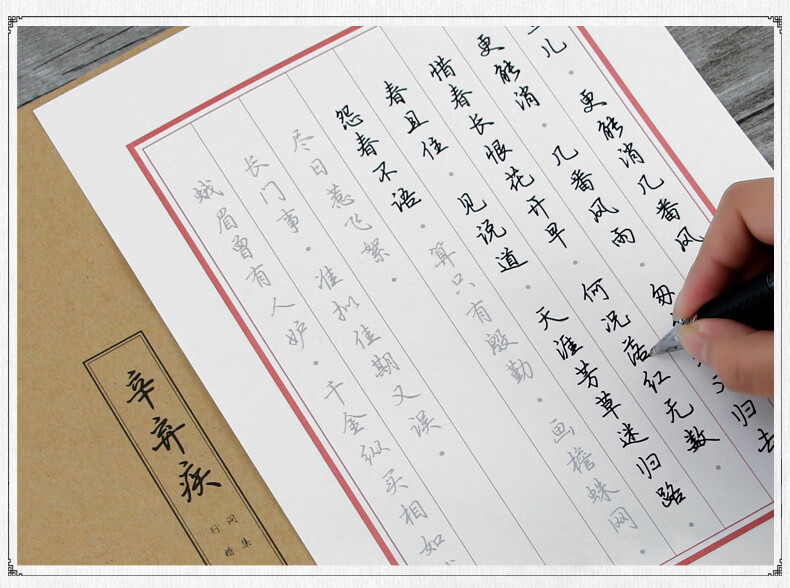 儿·更能消几番风
更能消·几番风雨·匆又归去
惜春长恨花开早·何况落红无数
春且住·见说道·天涯芳草迷归路
怨春不语·算只有殷勤·画檐蛛网
尽日惹飞絮·
长门事·准拟佳期又误·
蛾眉曾有人妒·千金纵买相如
辛弃疾
词集
行楷